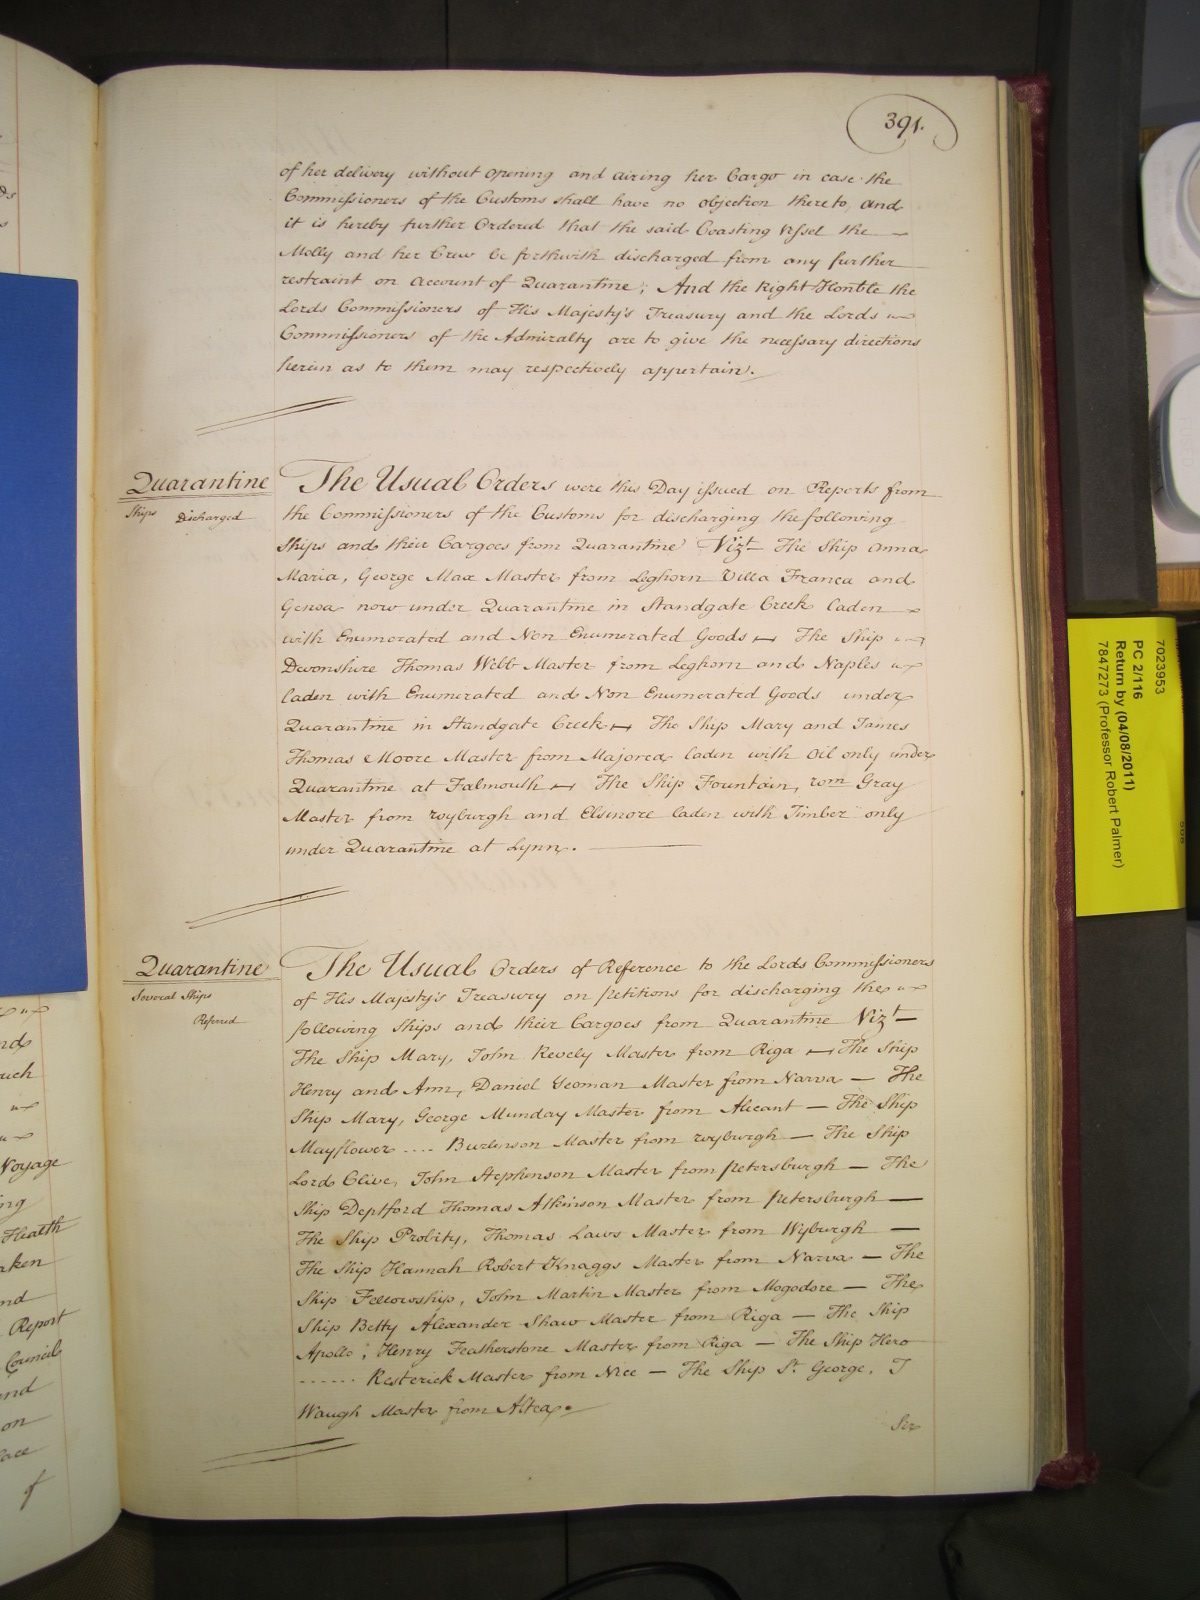 391.
of her delivery without opening and airing her Cargo in case the
Commissioners of the Customs shall have no objection thereto, and
it is hereby further Ordered that the said Coasting Vessel the
Molly and her Crew be forthwith discharged from any further
restraint on account of Quarantine; And the Right Honble the
Lords Commissioners of His Majesty's Treasury and the Lords
Commissioners of the Admiralty are to give the necessary directions
herein as to them may respectively appertain.
Quarantine
Ships Discharged
The Usual Orders were this Day issued on Reports from
the Commissioners of the Customs for discharging the following
Ships and their Cargoes from Quarantine Vizt The Ship Anna
Maria, George Max Master from Leghorn Villa Franca and
Genoa now under Quarantine in Standgate Creek Laden
with Enumerated and Non Enumerated Goods — The Ship
Devonshire Thomas Webb Master from Leghorn and Naples
laden with Enumerated and Non Enumerated Goods under
Quarantine in Standgate Creek — The Ship Mary and James
Thomas Moore Master from Majorca laden with Oil only under
Quarantine at Falmouth — The Ship Fountain, Wm Gray
Master from Wyburgh and Elsinore laden with Timber only
under Quarantine at Lynn.
Quarantine
Several Ships
Referred
The Usual Orders of Reference to the Lords Commissioners
of His Majesty's Treasury on petitions for discharging the
following Ships and their Cargoes from Quarantine Vizt
The Ship Mary, John Revely Master from Riga — The Ship
Henry and Ann, Daniel Yeoman Master from Narva — The
Ship Mary, George Munday Master from Alicant — The Ship
Mayflower .... Burlinson Master from Wyburgh — The Ship
Lord Clive, John Stephenson Master from petersburgh — The
Ship Deptford Thomas Atkinson Master from petersburgh —
The Ship Probity, Thomas Laws Master from Wyburgh —
The Ship Hannah Robert Knaggs Master from Narva — The
Ship Fellowship, John Martin Master from Mogodore — The
Ship Betty Alexander Shaw Master from Riga — The Ship
Apollo, Henry Featherstone Master from Riga — The Ship Hero
...... Resterick Master from Nice — The Ship St. George, J
Waugh Master from Altea.
Nds
Voyage
ing
Health
aken
nd
Report
Council
and
on
lace
of
7023953
PC 2/116
Return by (04/08/2011)
7847273 (Professor Robert Palmer)